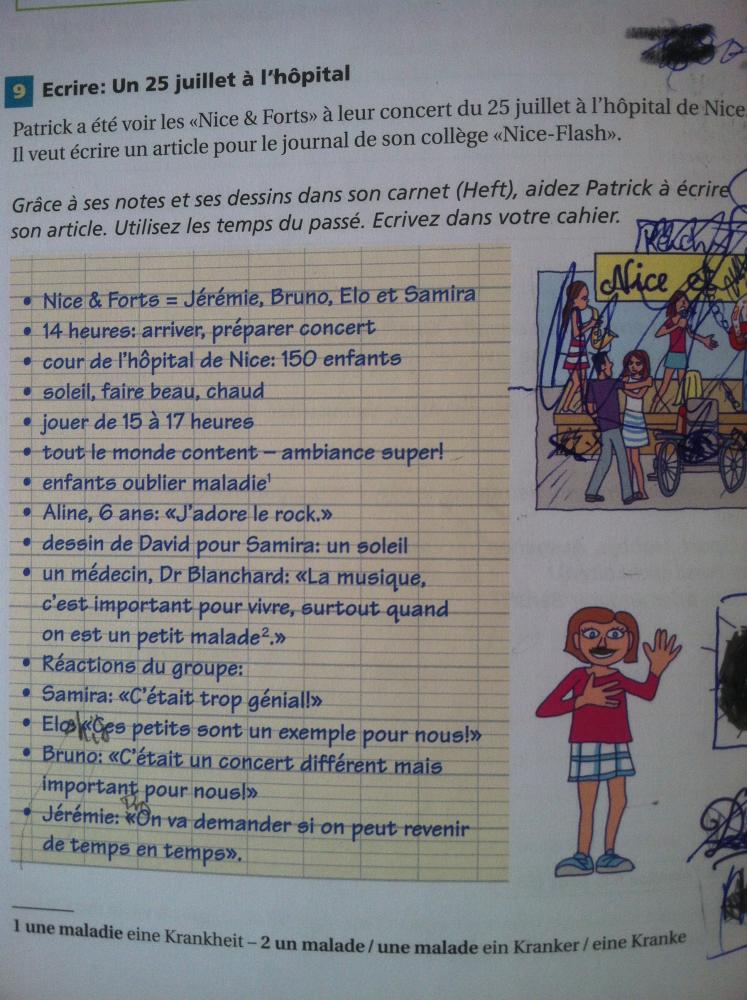 9 Ecrire: Un 25 juillet à l'hôpital
Patrick a été voir les «Nice & Forts» à leur concert du 25 juillet à l'hôpital de Nice.
Il veut écrire un article pour le journal de son collège «Nice-Flash».
Grâce à ses notes et ses dessins dans son carnet (Heft), aidez Patrick à écrire
son article. Utilisez les temps du passé. Ecrivez dans votre cahier.
Nice
• Nice & Forts = Jérémie, Bruno, Elo et Samira
• 14 heures: arriver, préparer concert
• cour de l'hôpital de Nice: 150 enfants
• soleil, faire beau, chaud
• jouer de 15 à 17 heures
• tout le monde content – ambiance super!
• enfants oublier maladie¹
• Aline, 6 ans: «J'adore le rock.»
• dessin de David pour Samira: un soleil
• un médecin, Dr Blanchard: «La musique,
c'est important pour vivre, surtout quand
on est un petit malade².»
• Réactions du groupe:
• Samira: «C'était trop génial!»
• Elo: «Ces petits sont un exemple pour nous!»
• Bruno: «C'était un concert différent mais
important pour nous!»
• Jérémie: «On va demander si on peut revenir
de temps en temps».
1 une maladie eine Krankheit – 2 un malade / une malade ein Kranker / eine Kranke